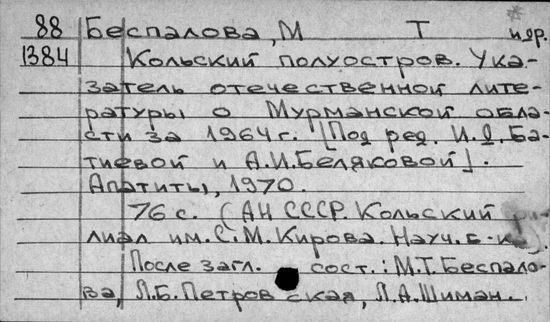 88 Беспалова, М Т и др.
1384 Кольский полуостров. Ука-
затель отечественной лите-
ратуры о Мурманской обла-
сти за 1964 г. [Под ред. И.Д. Ба-
тиевой и А.И. Беляковой].
Апатиты, 1970.
76 с. (АН СССР. Кольский
лиал им. С.М. Кирова. Науч. б-ка).
После загл. сост.: М.Т. Беспало-
ва, Л.Б. Петровская, Л.А. Шиман.